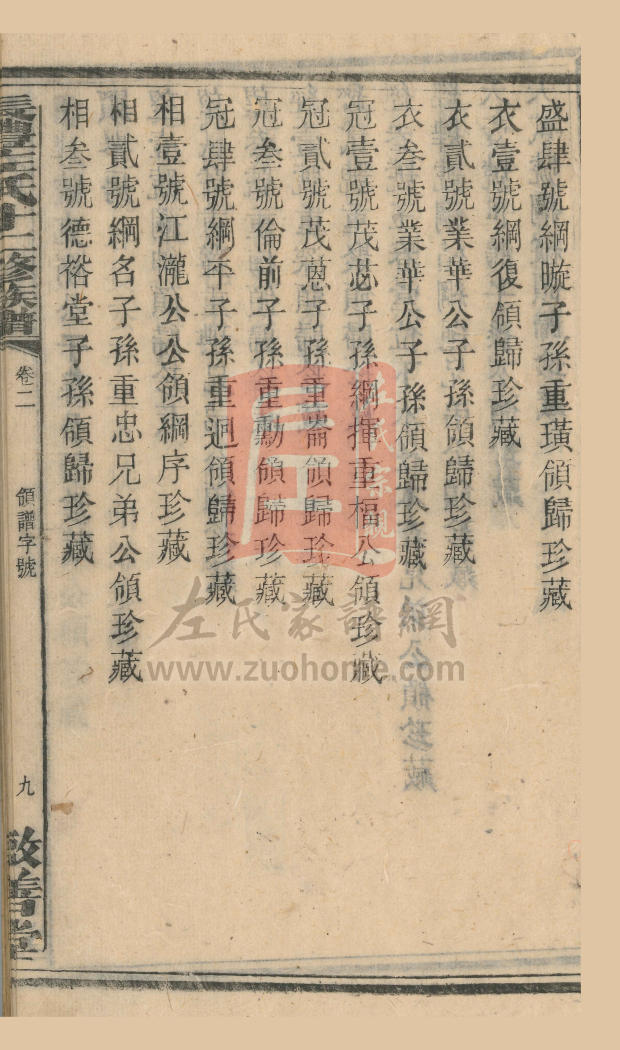 盛肆號綱暶子孫重璜領歸珍藏
衣壹號綱復領歸珍藏
衣貳號業華公子孫領歸珍藏
衣叁號業華公子孫領歸珍藏
冠壹號茂苾子孫綱揮重楅公領珍藏
冠貳號茂蒽子孫重崙領歸珍藏
冠叁號倫前子孫重勳領歸珍藏
冠肆號綱平子孫重迵領歸珍藏
相壹號江瀧公公領綱序珍藏
相貳號綱名子孫重忠兄弟公領珍藏
相叁號德裕堂子孫領歸珍藏
左氏十二修族譜
卷二
領譜字號
九
敬善堂
左氏宗親
左氏家譜網
www.zuohome.com